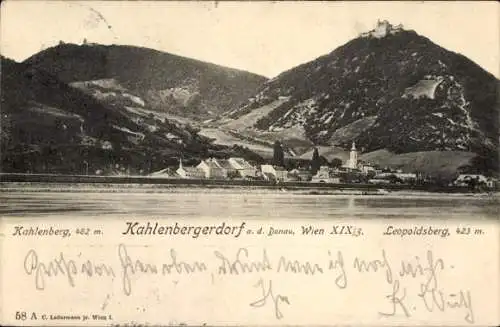 Kahlenberg, 482 m.
Kahlenbergerdorf a. d. Donau, Wien XIX|5.
Leopoldsberg, 423 m.
Gruß von hier oben, dort war ich noch nie.
Ihr
58 A C. Ledermann jr. Wien I.